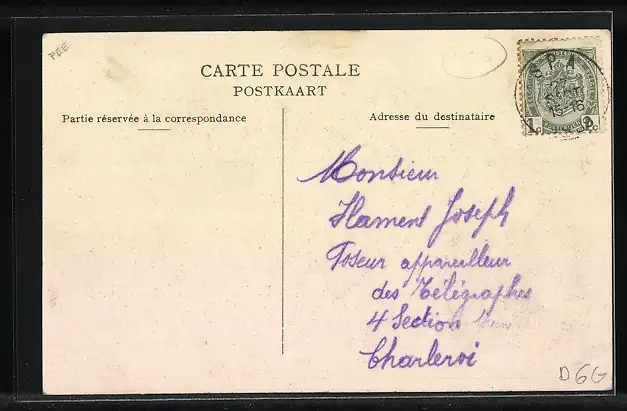 PEE
CARTE POSTALE
POSTKAART
SPA
15-16
1 c
Partie réservée à la correspondance
Adresse du destinataire
Monsieur
Flament Joseph
Poseur appareilleur
des Télégraphes
4 Section
Charleroi
D6G